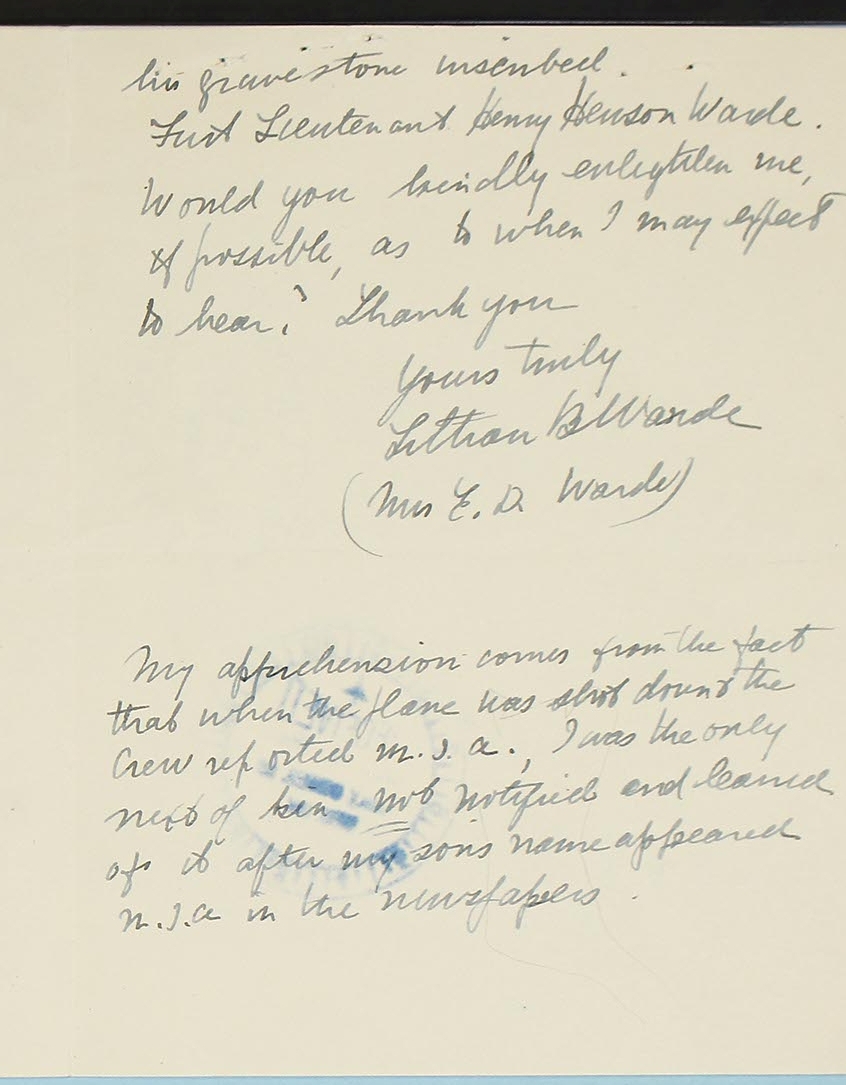 his gravestone inscribed.
First Lieutenant Henry Henson Warde.
Would you kindly enlighten me,
if possible, as to when I may expect
to hear? Thank you
Yours truly
Lillian B Warde
(Mrs E. D. Warde)
My apprehension comes from the fact
that when the plane was shot down & the
Crew reported M.I.A., I was the only
next of kin not notified and learned
of it after my sons name appeared
M.I.A in the newspapers.